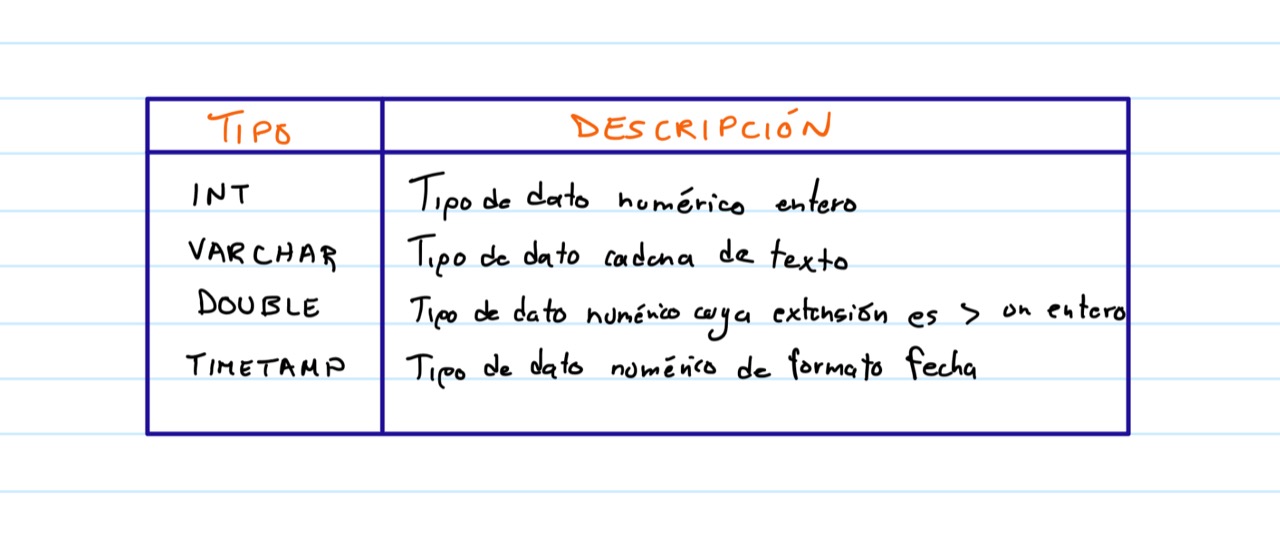 TIPO DESCRIPCIÓN
INT Tipo de dato numérico entero
VARCHAR Tipo de dato cadena de texto
DOUBLE Tipo de dato numérico cuya extensión es > un entero
TIMETAMP Tipo de dato numérico de formato fecha